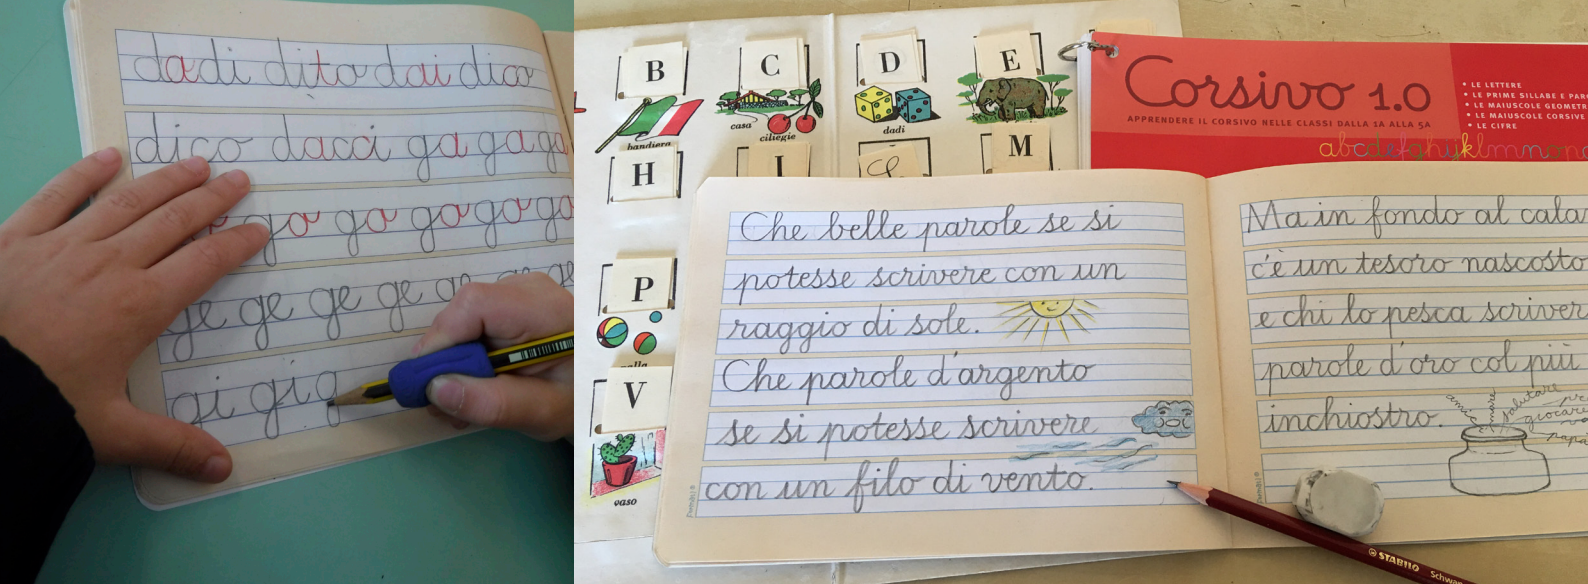 dadi dito dai dico
dico dacci ga ga ga
go go go go go
ge ge ge ge ge ge ge
gi gi g
B
C
D
E
bandiera
casa
ciliegie
dadi
H
I
M
P
V
vaso
Corsivo 1.0
APPRENDERE IL CORSIVO NELLE CLASSI DALLA 1A ALLA 5A
• LE LETTERE
• LE PRIME SILLABE E PAR
• LE MAIUSCOLE GEOMETR
• LE MAIUSCOLE CORSIVE
• LE CIFRE
abcdefghijklmnno
Che belle parole se si
potesse scrivere con un
raggio di sole.
Che parole d'argento
se si potesse scrivere
con un filo di vento.
Ma in fondo al cala
c'è un tesoro nascosto
e chi lo pesca scriver
parole d'oro col più
inchiostro.
amici
mare
salutare
giocare
papà
STABILO Schwan